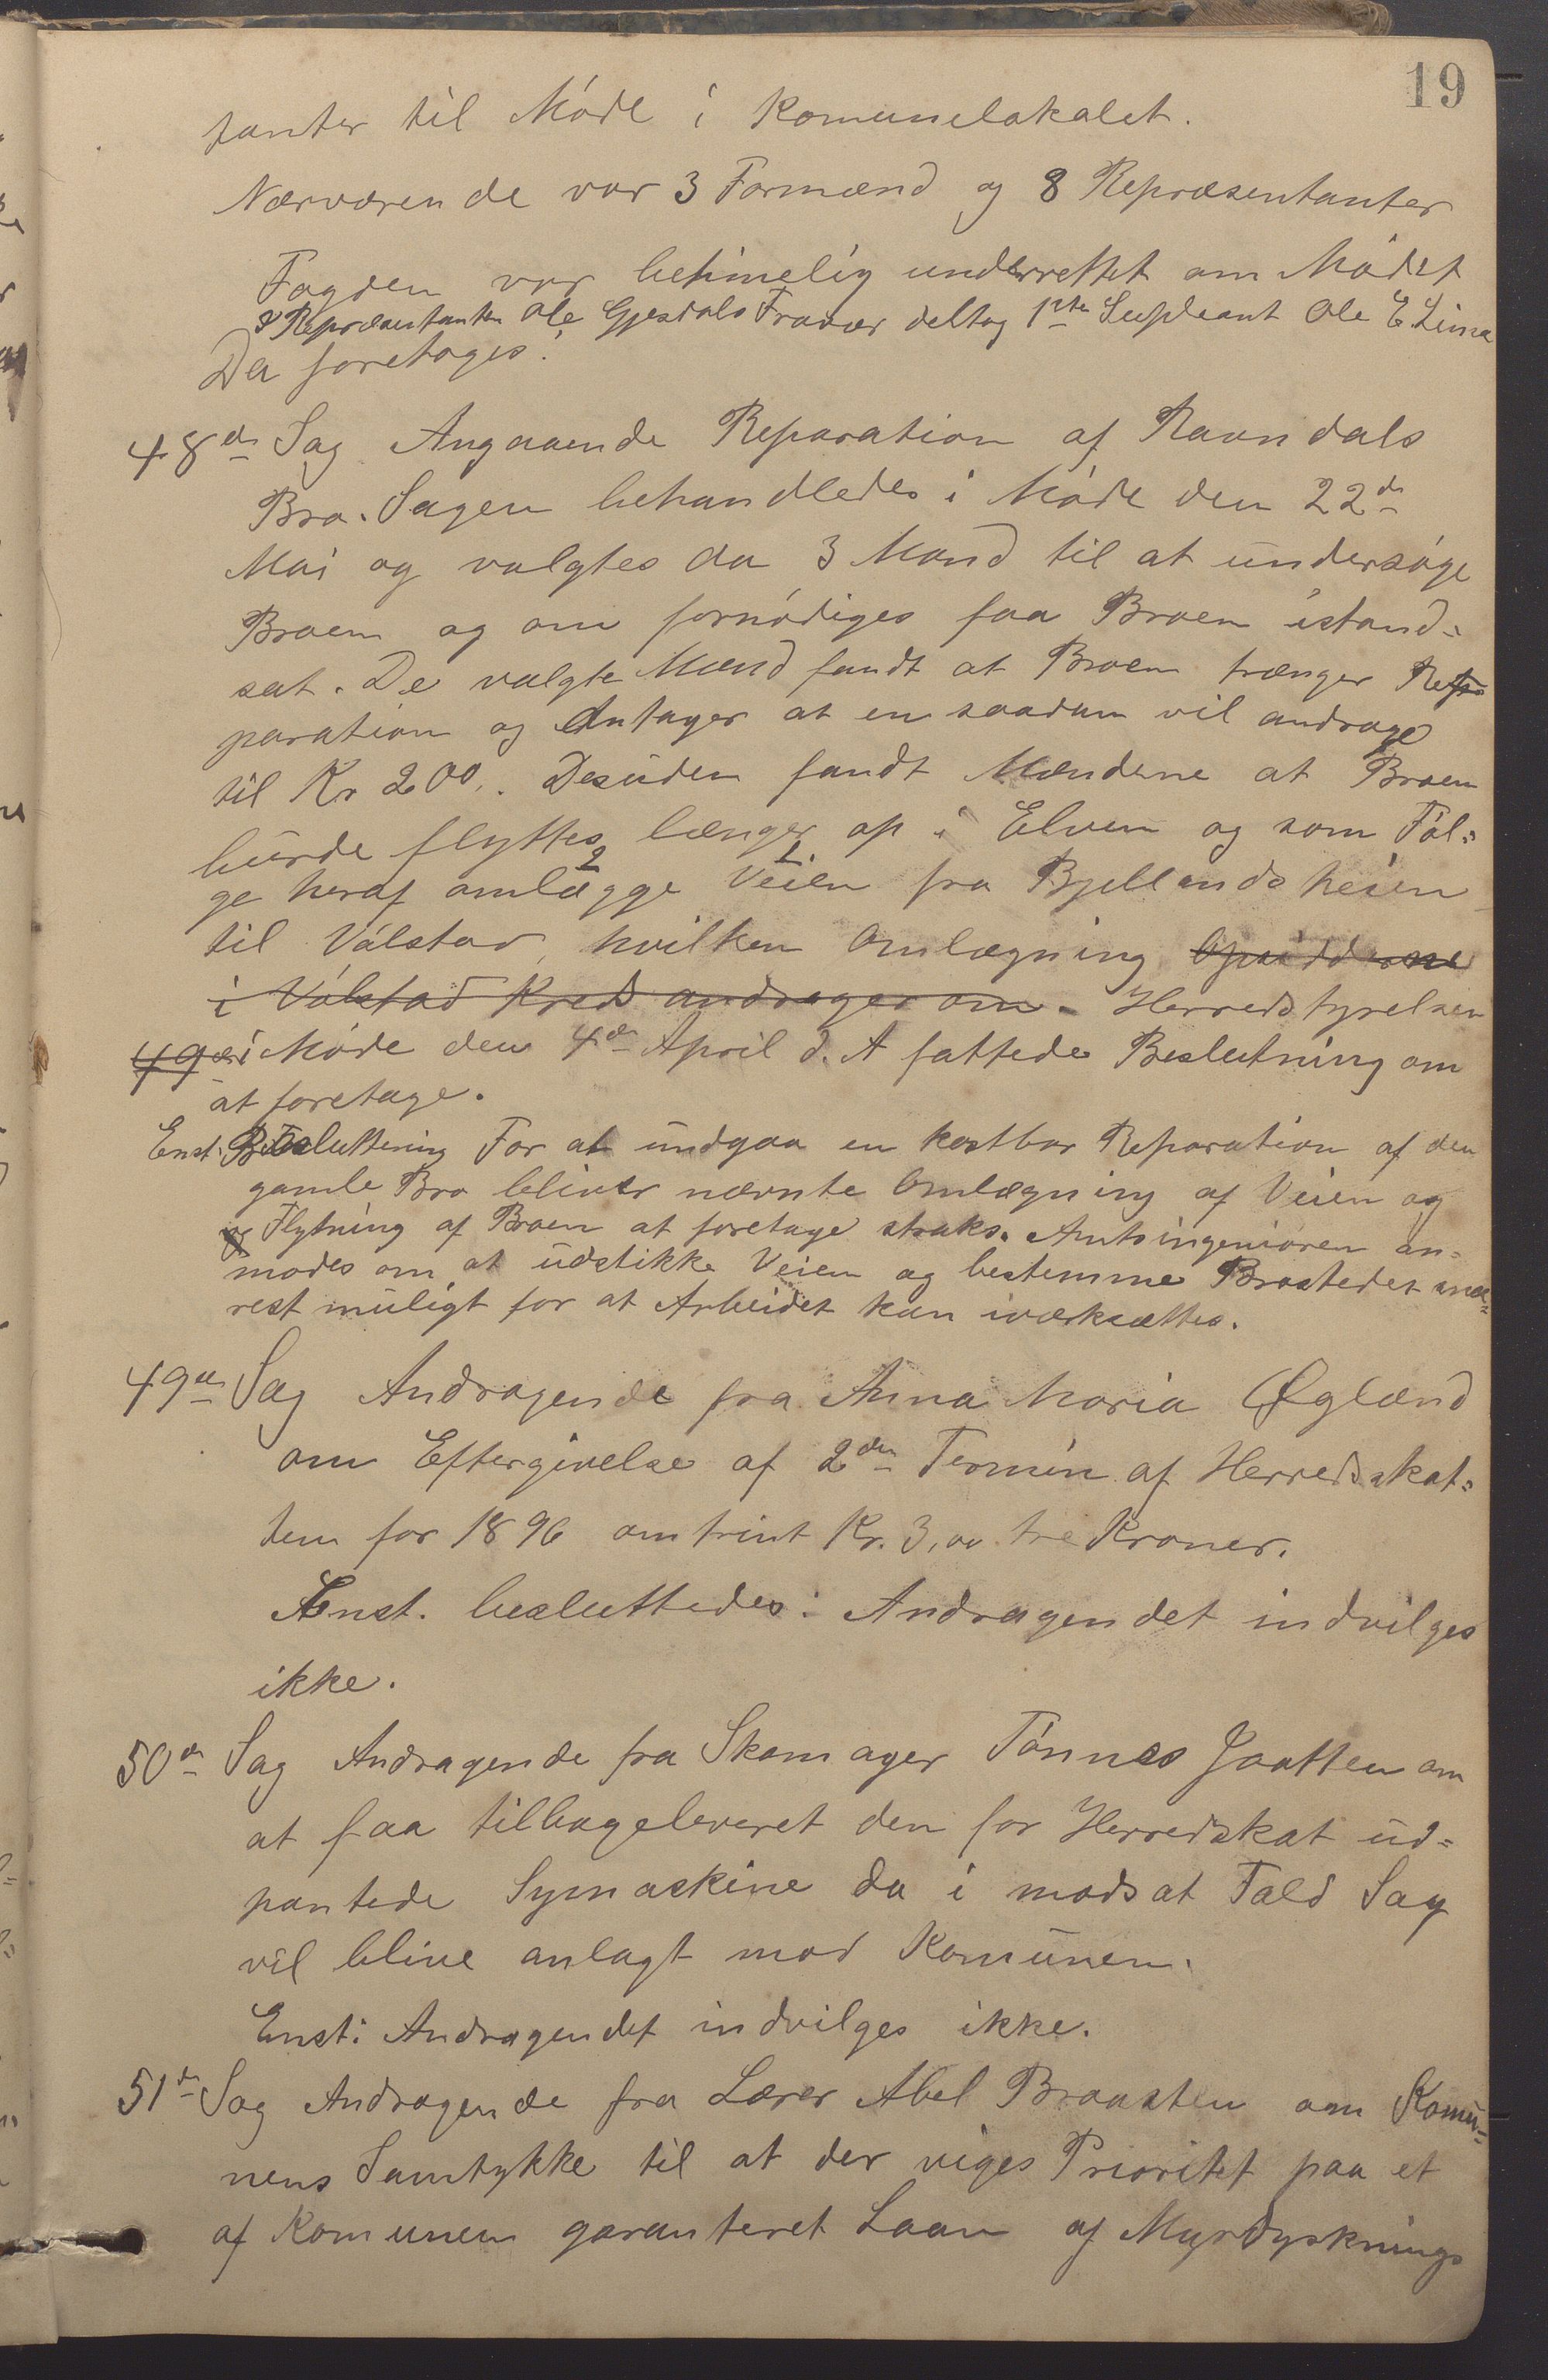 19
tanter til Møde i Komunelokalet.
Nærværende var 3 Formænd og 8 Repræsentanter
Fogden var betimelig underrettet om Mødet
I Repræsentanten Ole Gjesdals Fravær deltog 1ste Supleant Ole E Lima
Da foretoges:
48de Sag Angaaende Reparation af Ravndals
Bro. Sagen behandledes i Møde den 22de
Mai og valgtes da 3 Mand til at undersøge
Broen og om fornødiges faa Broen istand-
sat. De valgte Mænd fandt at Broen trænger Re-
paration og Antager at en saadan vil andrage
til Kr 200,. Desuden fandt Mændene at Broen
burde flyttes længer op i Elven og som Føl-
ge heraf omlægge 2 Veien 1 fra Bjellandsheien
til Vølstad, hvilken Omlægning Opsidderne
i Vølstad Kreds andrager om. Herredstyrelsen
49de i Møde den 4de April d. A fattede Beslutning om
at foretage.
Enst. Beslutning For at undgaa en kostbar Reparation af den
gamle Bro bliver nævnte Omlægning af Veien og
og Flytning af Broen at foretage straks. Amtsingeniøren an-
modes om at udstikke Veien og bestemme Brostedet sna-
rest muligt for at Arbeidet kan iværksættes.
49de Sag Andragende fra Anna Maria Øglænd
om Eftergivelse af 2den Termin af Herredsskat-
ten for 1896 omtrint Kr. 3,00 tre Kroner.
Enst. besluttedes: Andragendet indvilges
ikke.
50de Sag Andragende fra Skomager Tønnes Jaatten om
at faa tilbageleveret den for Herredskat ud-
pantede Symaskine da i modsat Fald Sag
vil blive anlagt mod Komunen.
Enst: Andragendet indvilges ikke.
51de Sag Andragende fra Lærer Abel Braasten om Komu-
nens Samtykke til at der viges Prioritet paa et
af Komunen garanteret Laan af Myrdyrknings